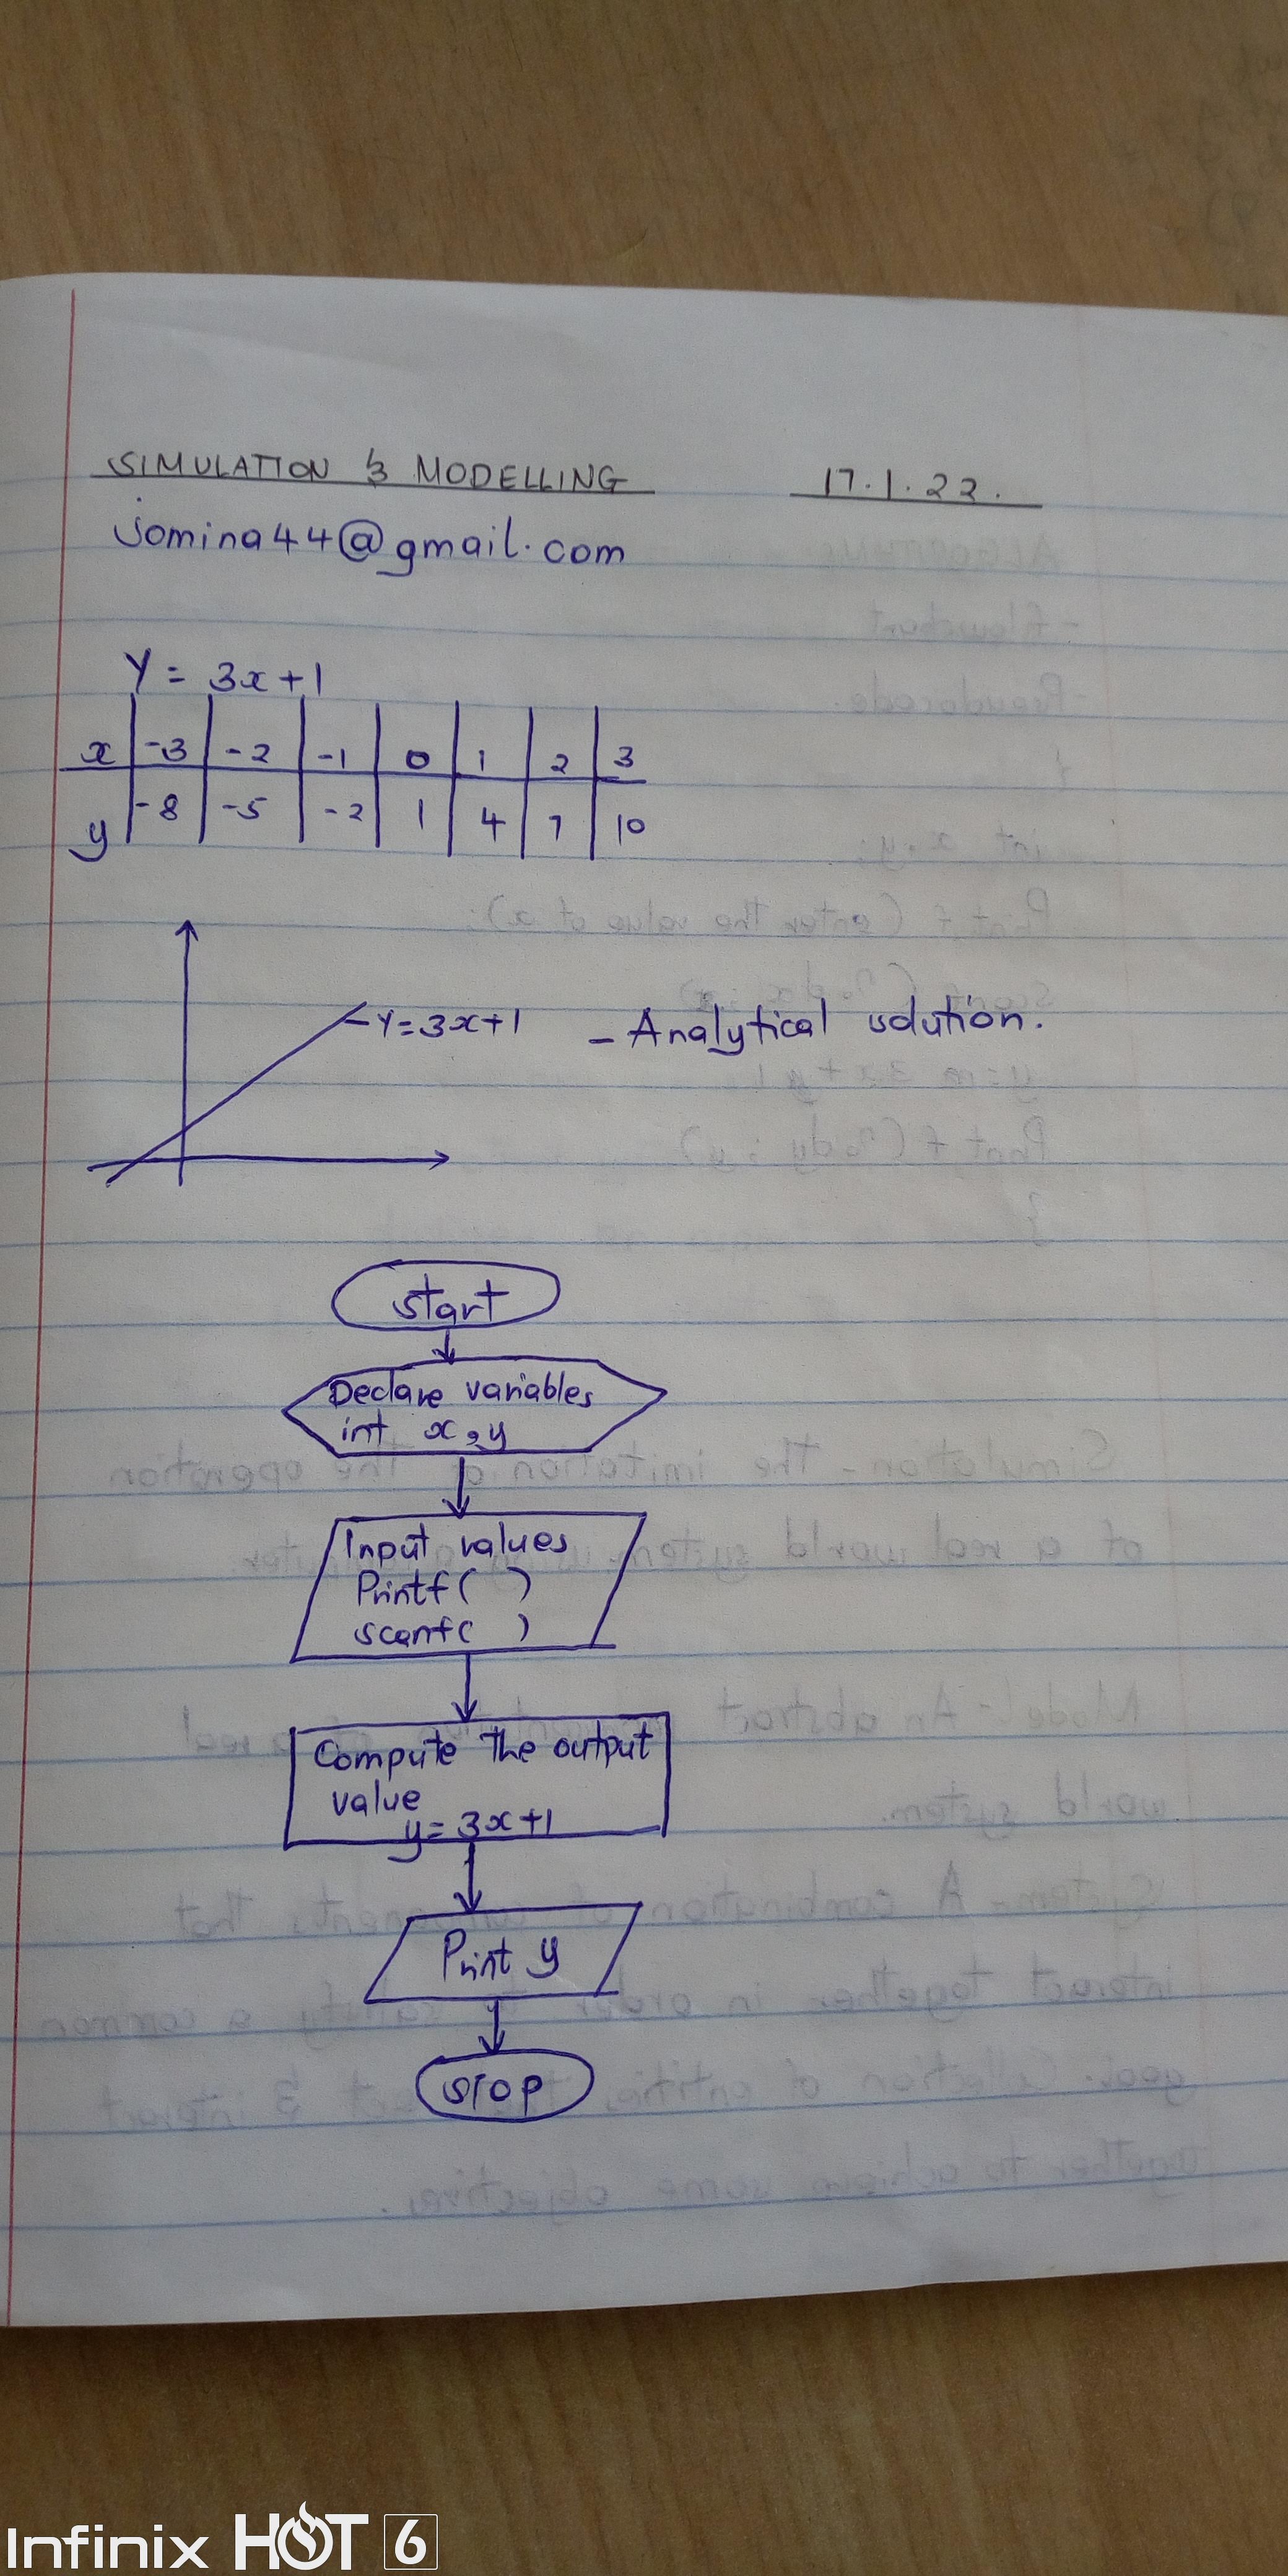 SIMULATION & MODELLING 17.1.22.
jomina44@gmail.com
Y = 3x+1
x -3 -2 -1 0 1 2 3
y -8 -5 -2 1 4 7 10
Y=3x+1 - Analytical solution.
start
Declare variables
int x,y
Input values
Printf( )
scanf( )
Compute the output
value
y=3x+1
Print y
stop
Infinix HOT 6